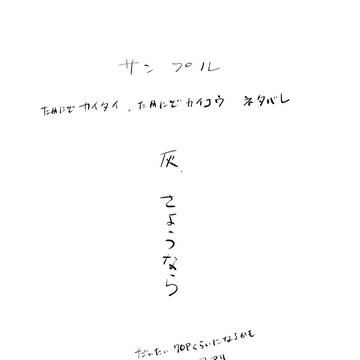 サンプル
たMにどカイタイ、たMにどカイコウ ネタバレ
灰、さようなら
だいたい70Pくらいになるかも